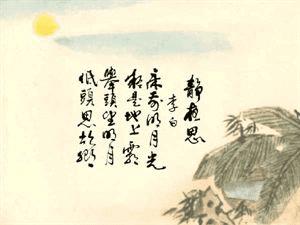 静夜思
李白
床前明月光
疑是地上霜
舉頭望明月
低頭思故鄉